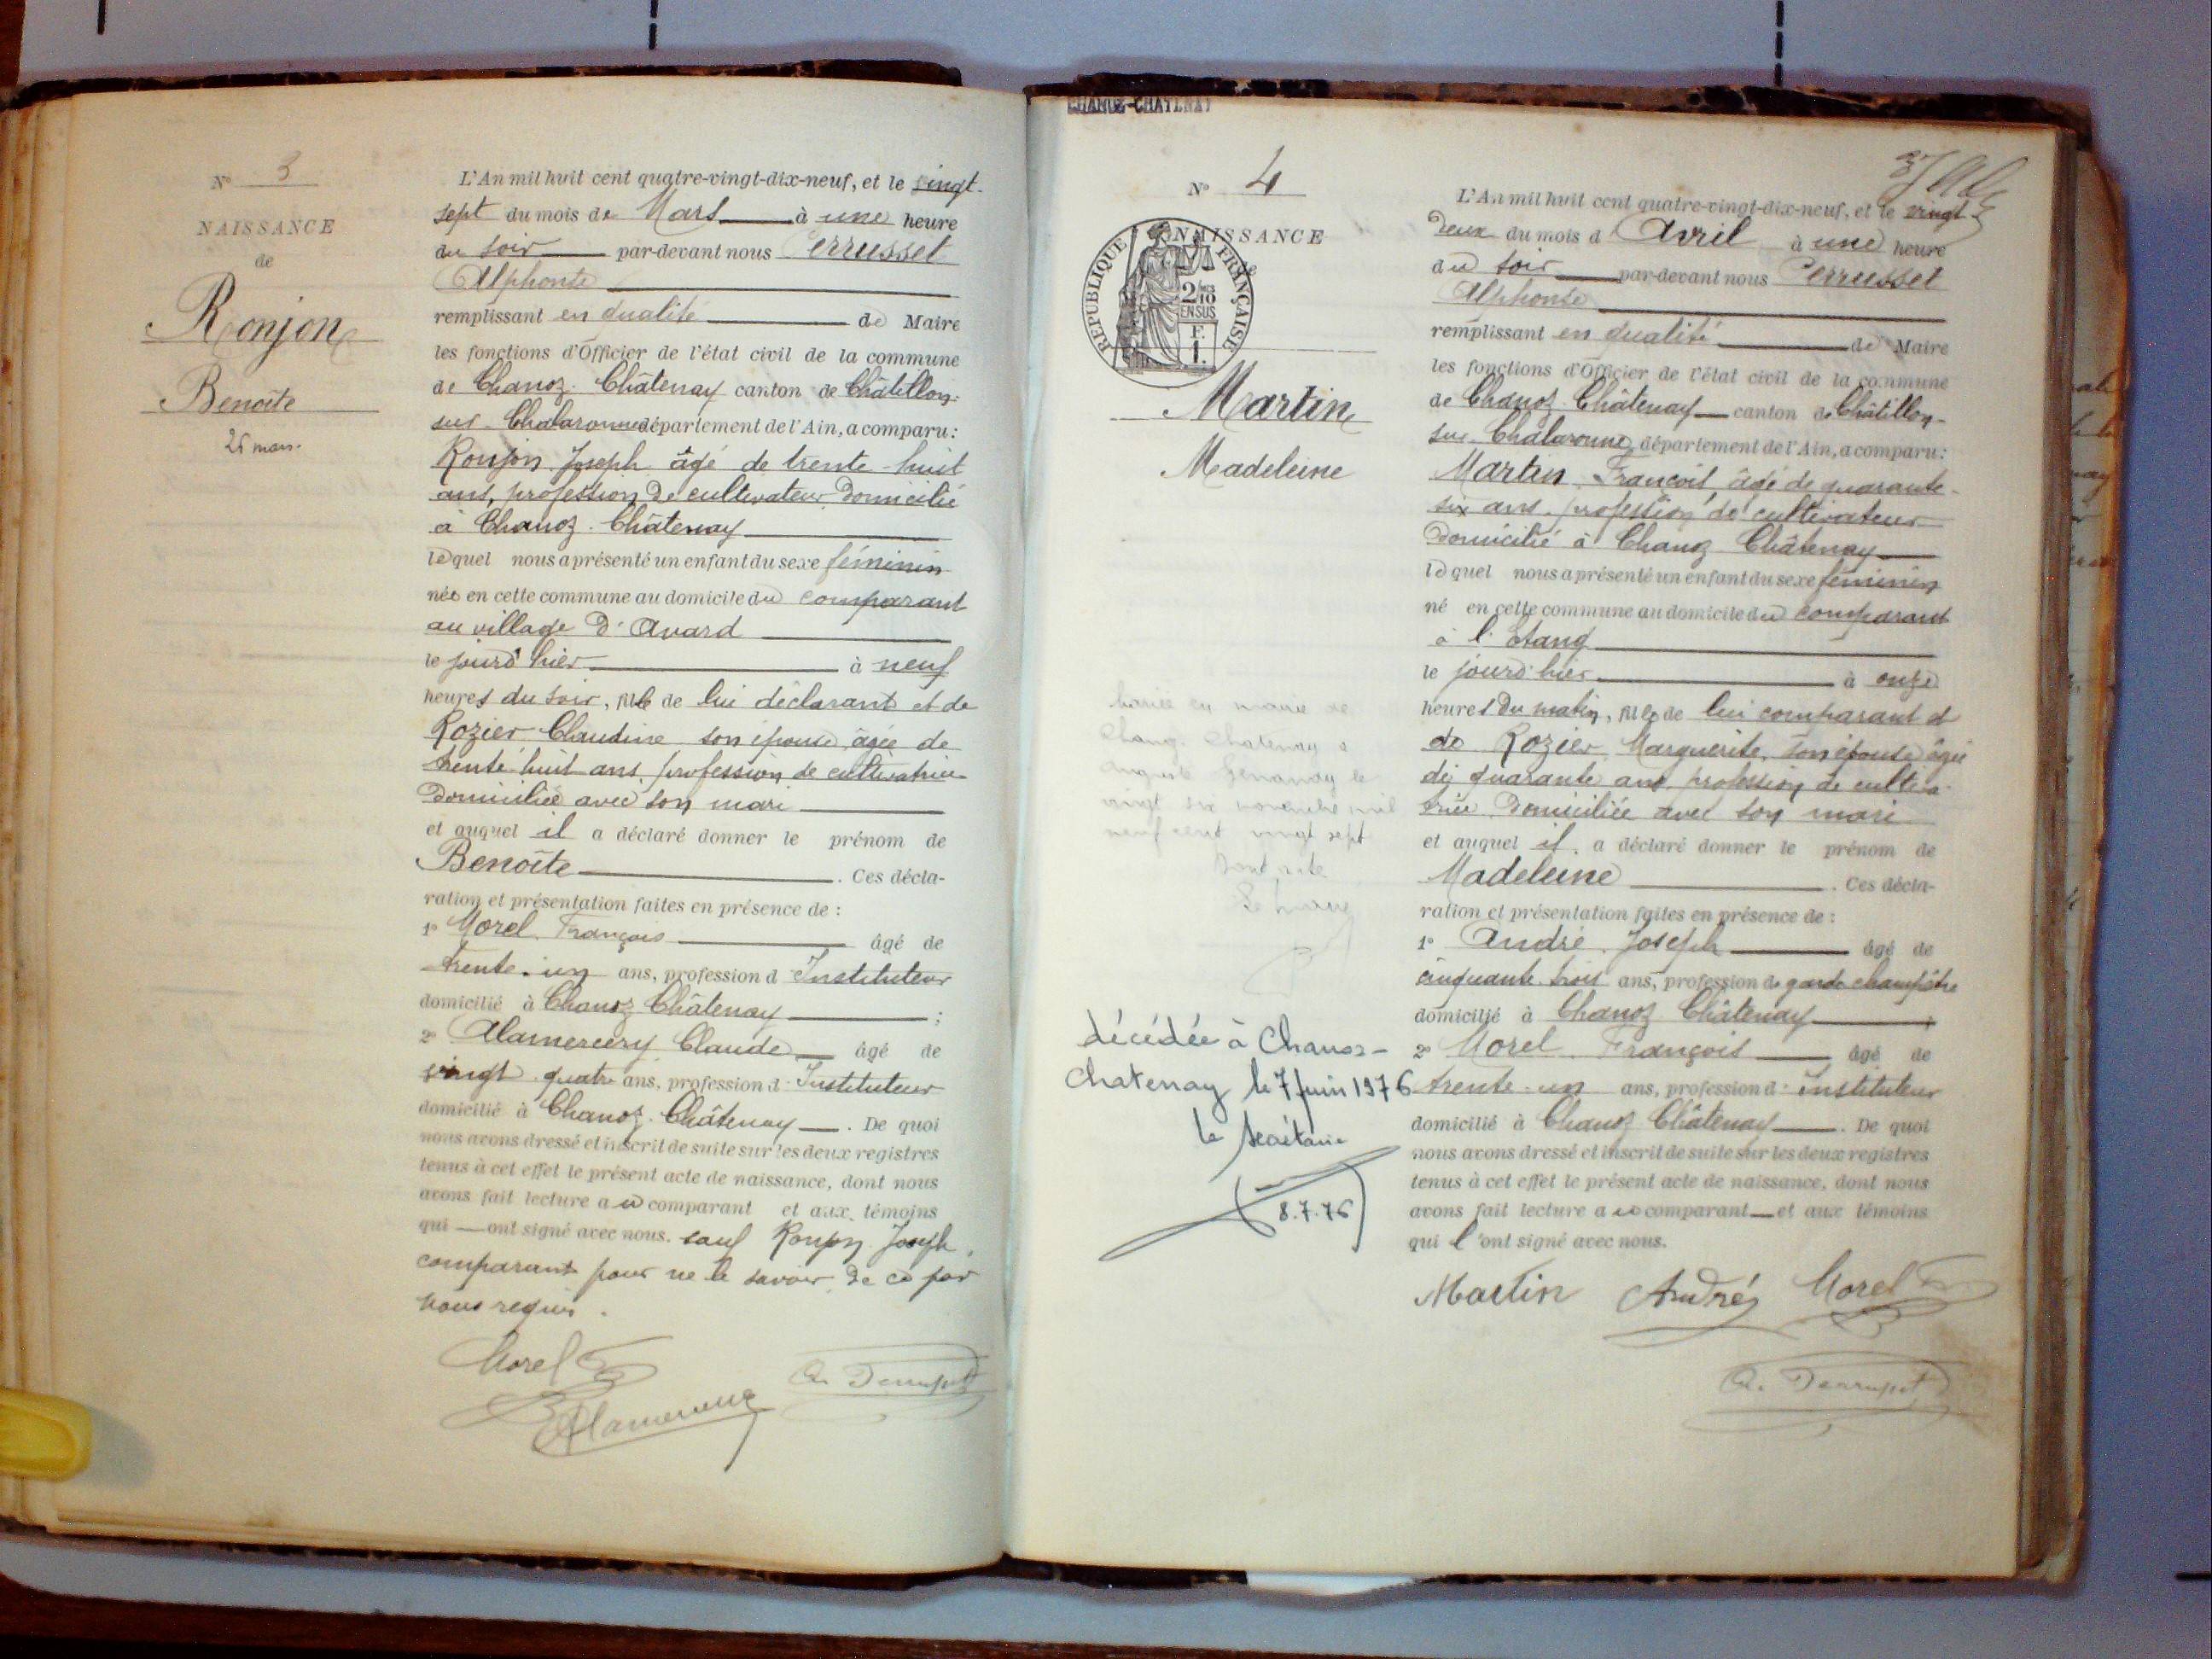 N° 3
NAISSANCE
de
Ronjon
Benoîte
26 mars.
L'An mil huit cent quatre-vingt-dix-neuf, et le vingt-
sept du mois de Mars à une heure
du soir par-devant nous Perrusset
Alphonse
remplissant en qualité de Maire
les fonctions d'Officier de l'état civil de la commune
de Chanoz-Châtenay canton de Châtillon-
sur-Chalaronne département de l'Ain, a comparu :
Ronjon Joseph âgé de trente-huit
ans, profession de cultivateur domicilié
à Chanoz-Châtenay
lequel nous a présenté un enfant du sexe féminin
née en cette commune au domicile du comparant
au village d'Avard
le jourd'hier à neuf
heures du soir, fille de lui déclarant et de
Rozier Claudine son épouse âgée de
trente-huit ans, profession de cultivatrice
domiciliée avec son mari
et auquel il a déclaré donner le prénom de
Benoîte . Ces décla-
ration et présentation faites en présence de :
1° Morel François âgé de
trente-un ans, profession d'Instituteur
domicilié à Chanoz-Châtenay ;
2° Alamercery Claude âgé de
vingt-quatre ans, profession d'Instituteur
domicilié à Chanoz-Châtenay . De quoi
nous avons dressé et inscrit de suite sur les deux registres
tenus à cet effet le présent acte de naissance, dont nous
avons fait lecture au comparant et aux témoins
qui ont signé avec nous. sauf Ronjon Joseph,
comparant pour ne le savoir, de ce par
nous requis.
Morel
Alamercery
A. Perrusset
CHANOZ-CHATENAY
N° 4
NAISSANCE
de
REPUBLIQUE FRANÇAISE
2/10
EN SUS
F.
1.
Martin
Madeleine
mariée en mairie de
Chanoz Chatenay à
le
vingt six novembre mil
neuf cent vingt sept
Dont note
Le maire
décédée à Chanoz-
Chatenay le 7 juin 1976
le secrétaire
8.7.76
L'An mil huit cent quatre-vingt-dix-neuf, et le vingt-
deux du mois d'Avril à une heure
du soir par-devant nous Perrusset
Alphonse
remplissant en qualité de Maire
les fonctions d'Officier de l'état civil de la commune
de Chanoz-Châtenay canton de Châtillon-
sur-Chalaronne département de l'Ain, a comparu :
Martin François, âgé de quarante-
six ans, profession de cultivateur
domicilié à Chanoz Châtenay
lequel nous a présenté un enfant du sexe féminin
né en cette commune au domicile du comparant
à l'étang
le jourd'hier à onze
heures du matin, fille de lui comparant et
de Rozier Marguerite, son épouse âgée
de quarante ans, profession de cultiva-
trice domiciliée avec son mari
et auquel il a déclaré donner le prénom de
Madeleine . Ces décla-
ration et présentation faites en présence de :
1° André Joseph âgé de
cinquante-trois ans, profession de garde champêtre
domicilié à Chanoz Châtenay ;
2° Morel François âgé de
trente-un ans, profession d'Instituteur
domicilié à Chanoz Châtenay . De quoi
nous avons dressé et inscrit de suite sur les deux registres
tenus à cet effet le présent acte de naissance, dont nous
avons fait lecture au comparant et aux témoins
qui l'ont signé avec nous.
Martin André Morel
A. Perrusset